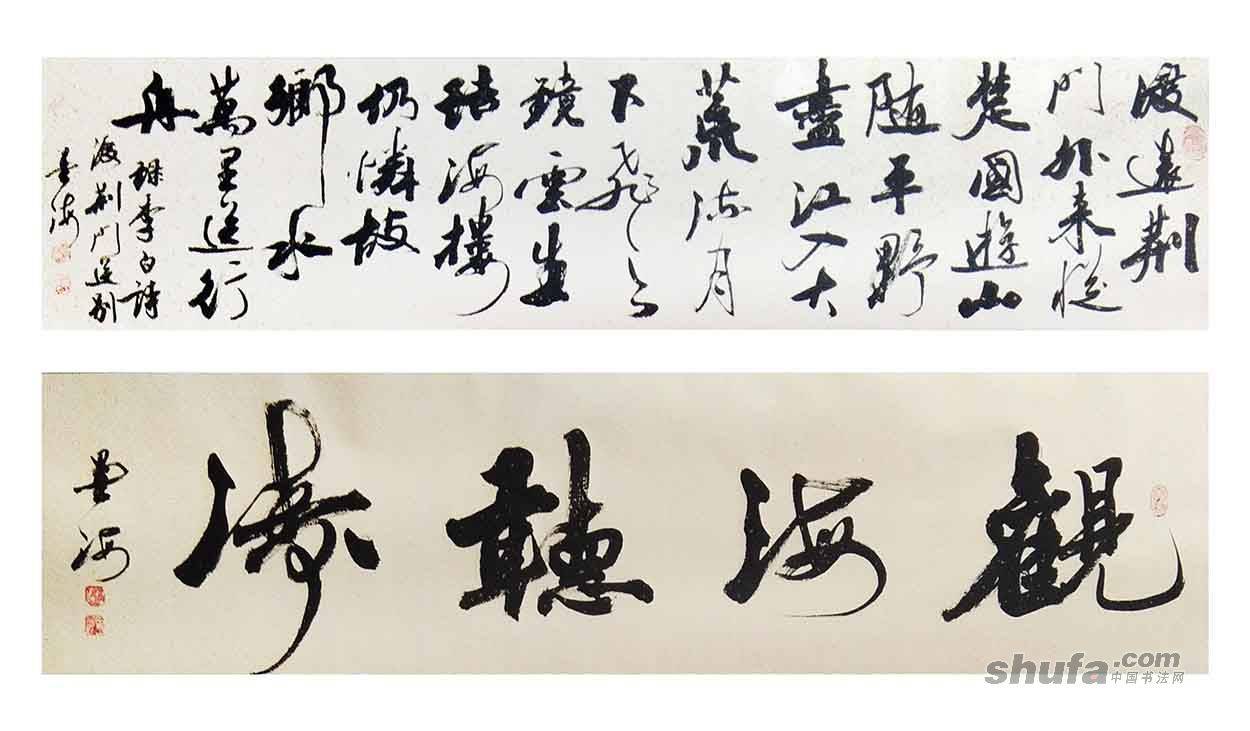 渡遠荆
门外来從
楚國遊山
隨平野
盡江入大
荒流月
下飛天
鏡雲生
結海樓
仍憐故
鄉水
萬里送行
舟
録李白詩
渡荆门送别
墨海
觀海聽濤
墨海
shufa.com
中国书法网